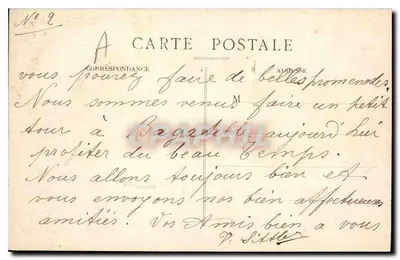 Nº 2
A
CARTE POSTALE
CORRESPONDANCE ADRESSE
vous pourez faire de belles promenades
Nous sommes venus faire un petit
tour à aujourd'hui
profiter du beau temps.
Nous allons toujours bien et
vous envoyons nos bien affectueuses
amitiés. Vos Amis bien a vous